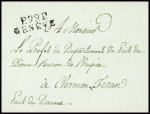 P.99.P.
GENÈVE
A Monsieur
Le Préfet du Département du Puits de
Dome Baron de
à Clermon Feran
Puits du Domme